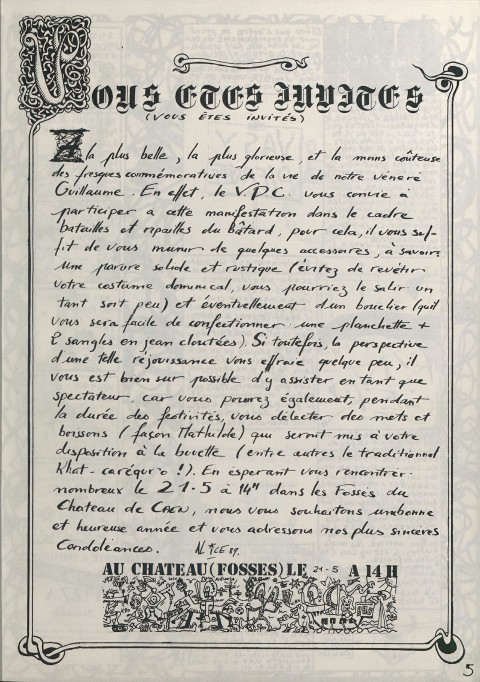 VOUS ETES INVITES
(VOUS ÊTES INVITÉS)
A la plus belle, la plus glorieuse, et la moins coûteuse
des fresques commémoratives de la vie de notre vénéré
Guillaume. En effet, le V.P.C. vous convie à
participer a cette manifestation dans le cadre
batailles et ripailles du bâtard, pour cela, il vous suf-
fit de vous munir de quelques accessoires, à savoir:
une parure solide et rustique (évitez de revêtir
votre costume dominical, vous pourriez le salir un
tant soit peu) et éventuellement d'un bouclier (qu'il
vous sera facile de confectionner une planchette +
2 sangles en jean cloutées). Si toutefois, la perspective
d'une telle réjouissance vous effraie quelque peu, il
vous est bien sur possible d'y assister en tant que
spectateur, car vous pourrez également, pendant
la durée des festivités, vous délecter des mets et
boissons (façon Mathilde) qui seront mis à votre
disposition à la buvette (entre autres le traditionnel
). En espérant vous rencontrer
nombreux le 21-5 à 14H dans les Fossés du
Chateau de CAEN, nous vous souhaitons une bonne
et heureuse année et vous adressons nos plus sincères
Condoléances.
AU CHATEAU (FOSSES) LE 21-5 A 14 H
5